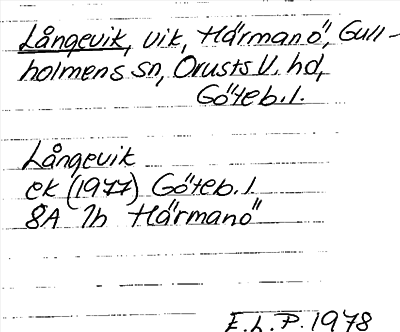 Långevik, vik, Härmanö, Gull-
holmens sn, Orusts V. hd,
Göteb.l.
Långevik
ek (1977) Göteb.l.
8A 7h Härmanö
E.L.P. 1978